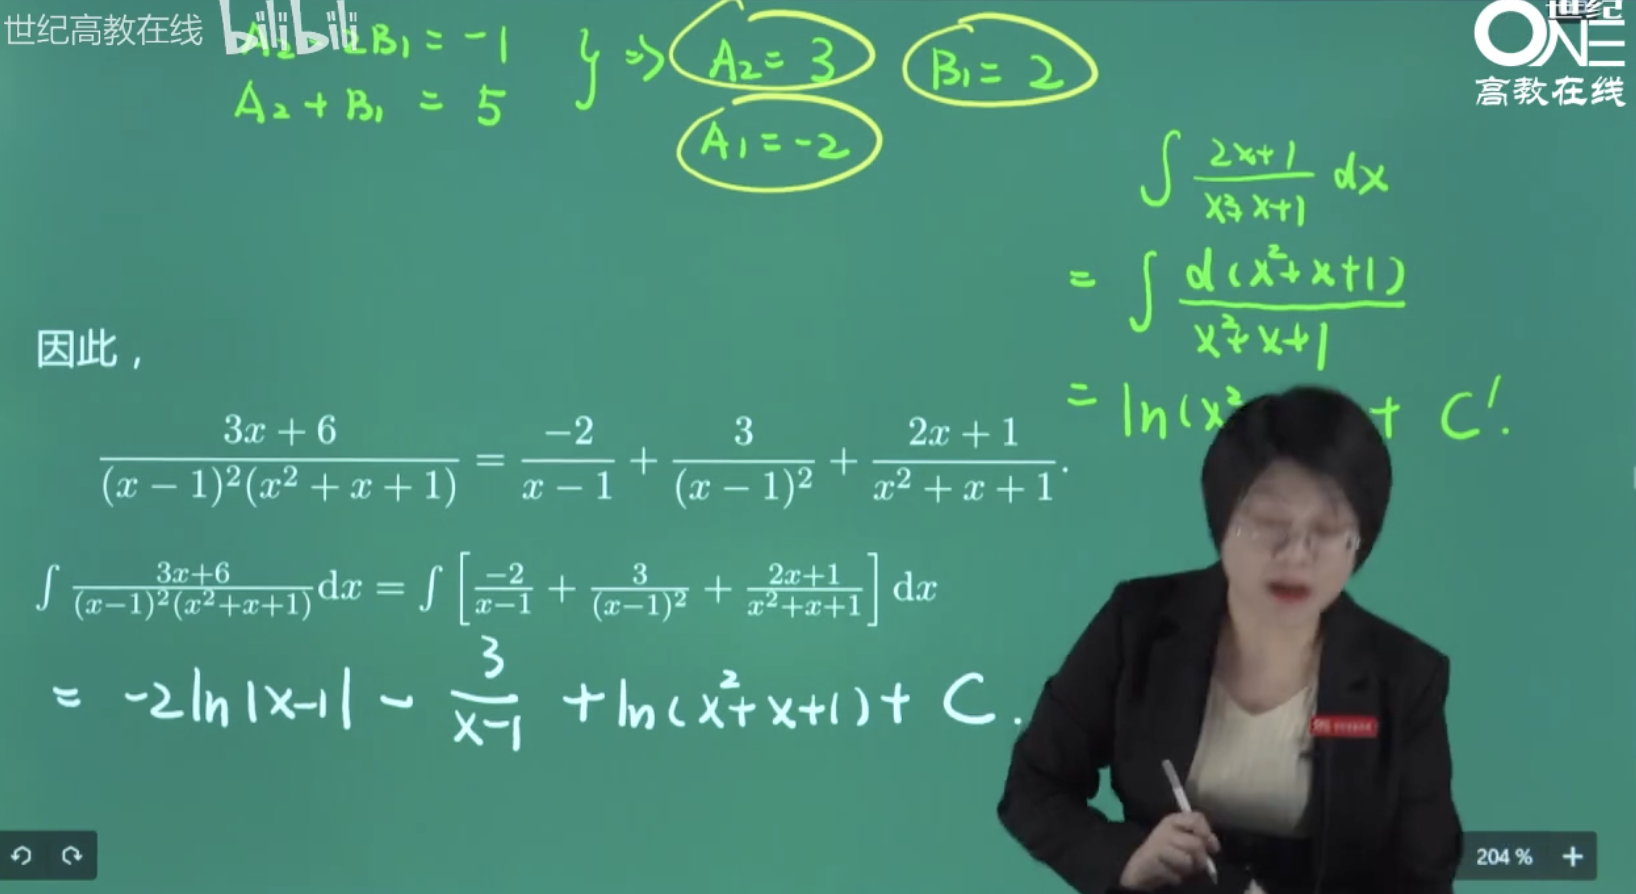 世纪高教在线 bilibili
世纪
ONE
高教在线
B₁ = -1
A₂ + B₁ = 5
} ⇒ A₂ = 3 B₁ = 2
A₁ = -2
∫ (2x+1)/(x²+x+1) dx
= ∫ d(x²+x+1)/(x²+x+1)
= ln(x² + C!
因此，
(3x + 6)/((x − 1)²(x² + x + 1)) = −2/(x − 1) + 3/(x − 1)² + (2x + 1)/(x² + x + 1).
∫ (3x+6)/((x−1)²(x²+x+1)) dx = ∫ [−2/(x−1) + 3/(x−1)² + (2x+1)/(x²+x+1)] dx
= -2ln|x-1| - 3/(x-1) + ln(x²+x+1) + C.
204 % +